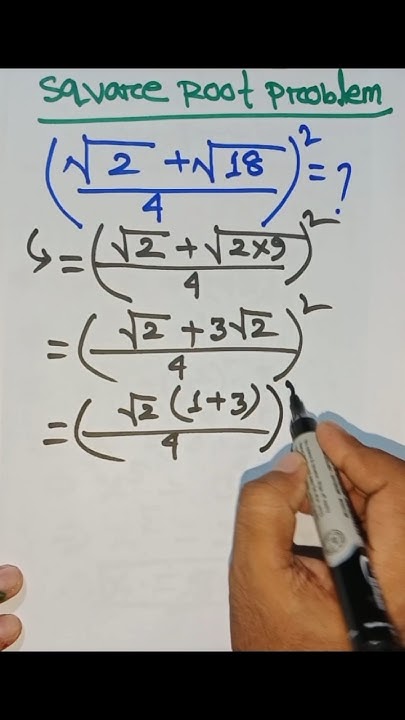 Squarce Root Prooblem
(√2 + √18 / 4)² = ?
↳ = (√2 + √2×9 / 4)²
= (√2 + 3√2 / 4)²
= (√2 (1+3) / 4)